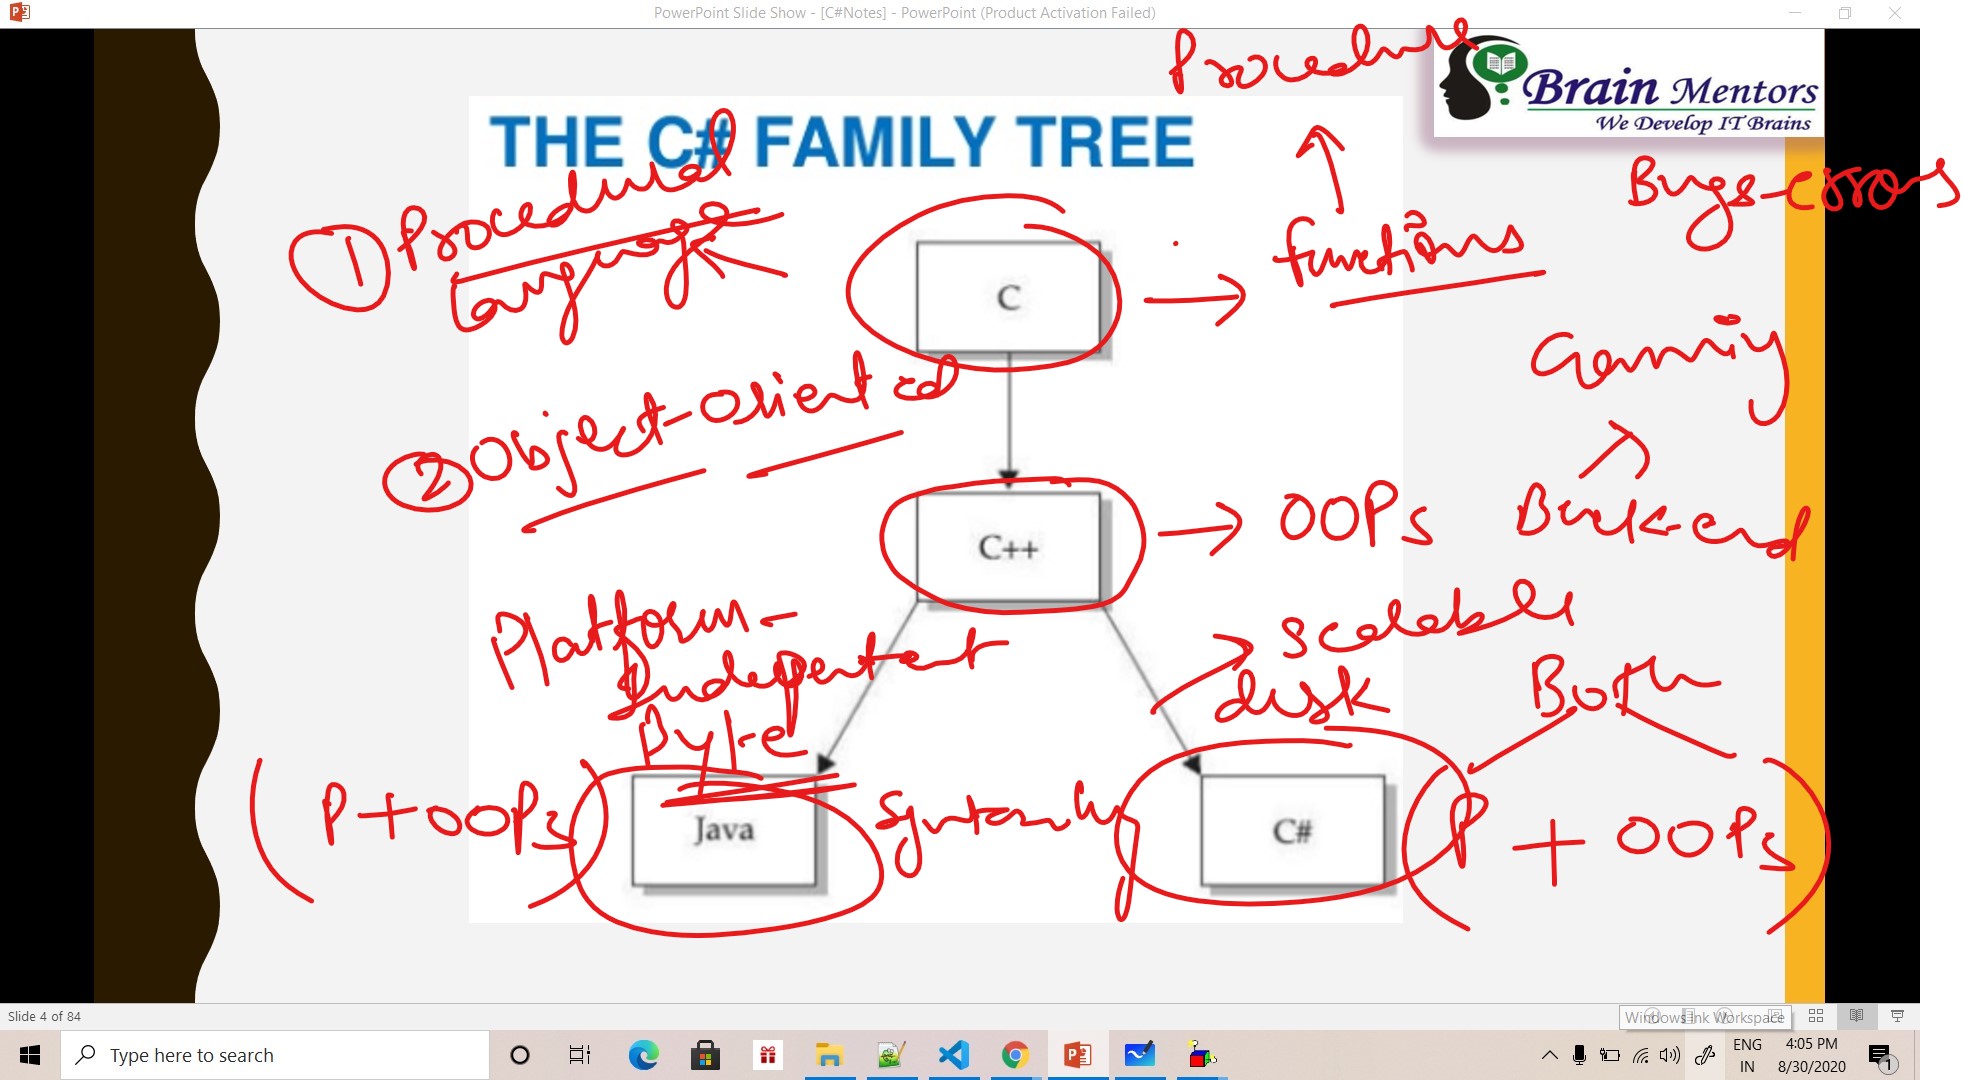 PowerPoint Slide Show - [C#Notes] - PowerPoint (Product Activation Failed)
Procedure
Brain Mentors
We Develop IT Brains
THE C# FAMILY TREE
Bugs-errors
1 Procedural
language
functions
C
Gaming
2 Object-oriented
C++
OOPs
Back-end
Platform-
Independent
Scalable
disk
Both
Byte
(P+OOPs)
Java
C#
(P + OOPs)
Slide 4 of 84
Windows Ink Workspace
Type here to search
ENG
IN
4:05 PM
8/30/2020
1